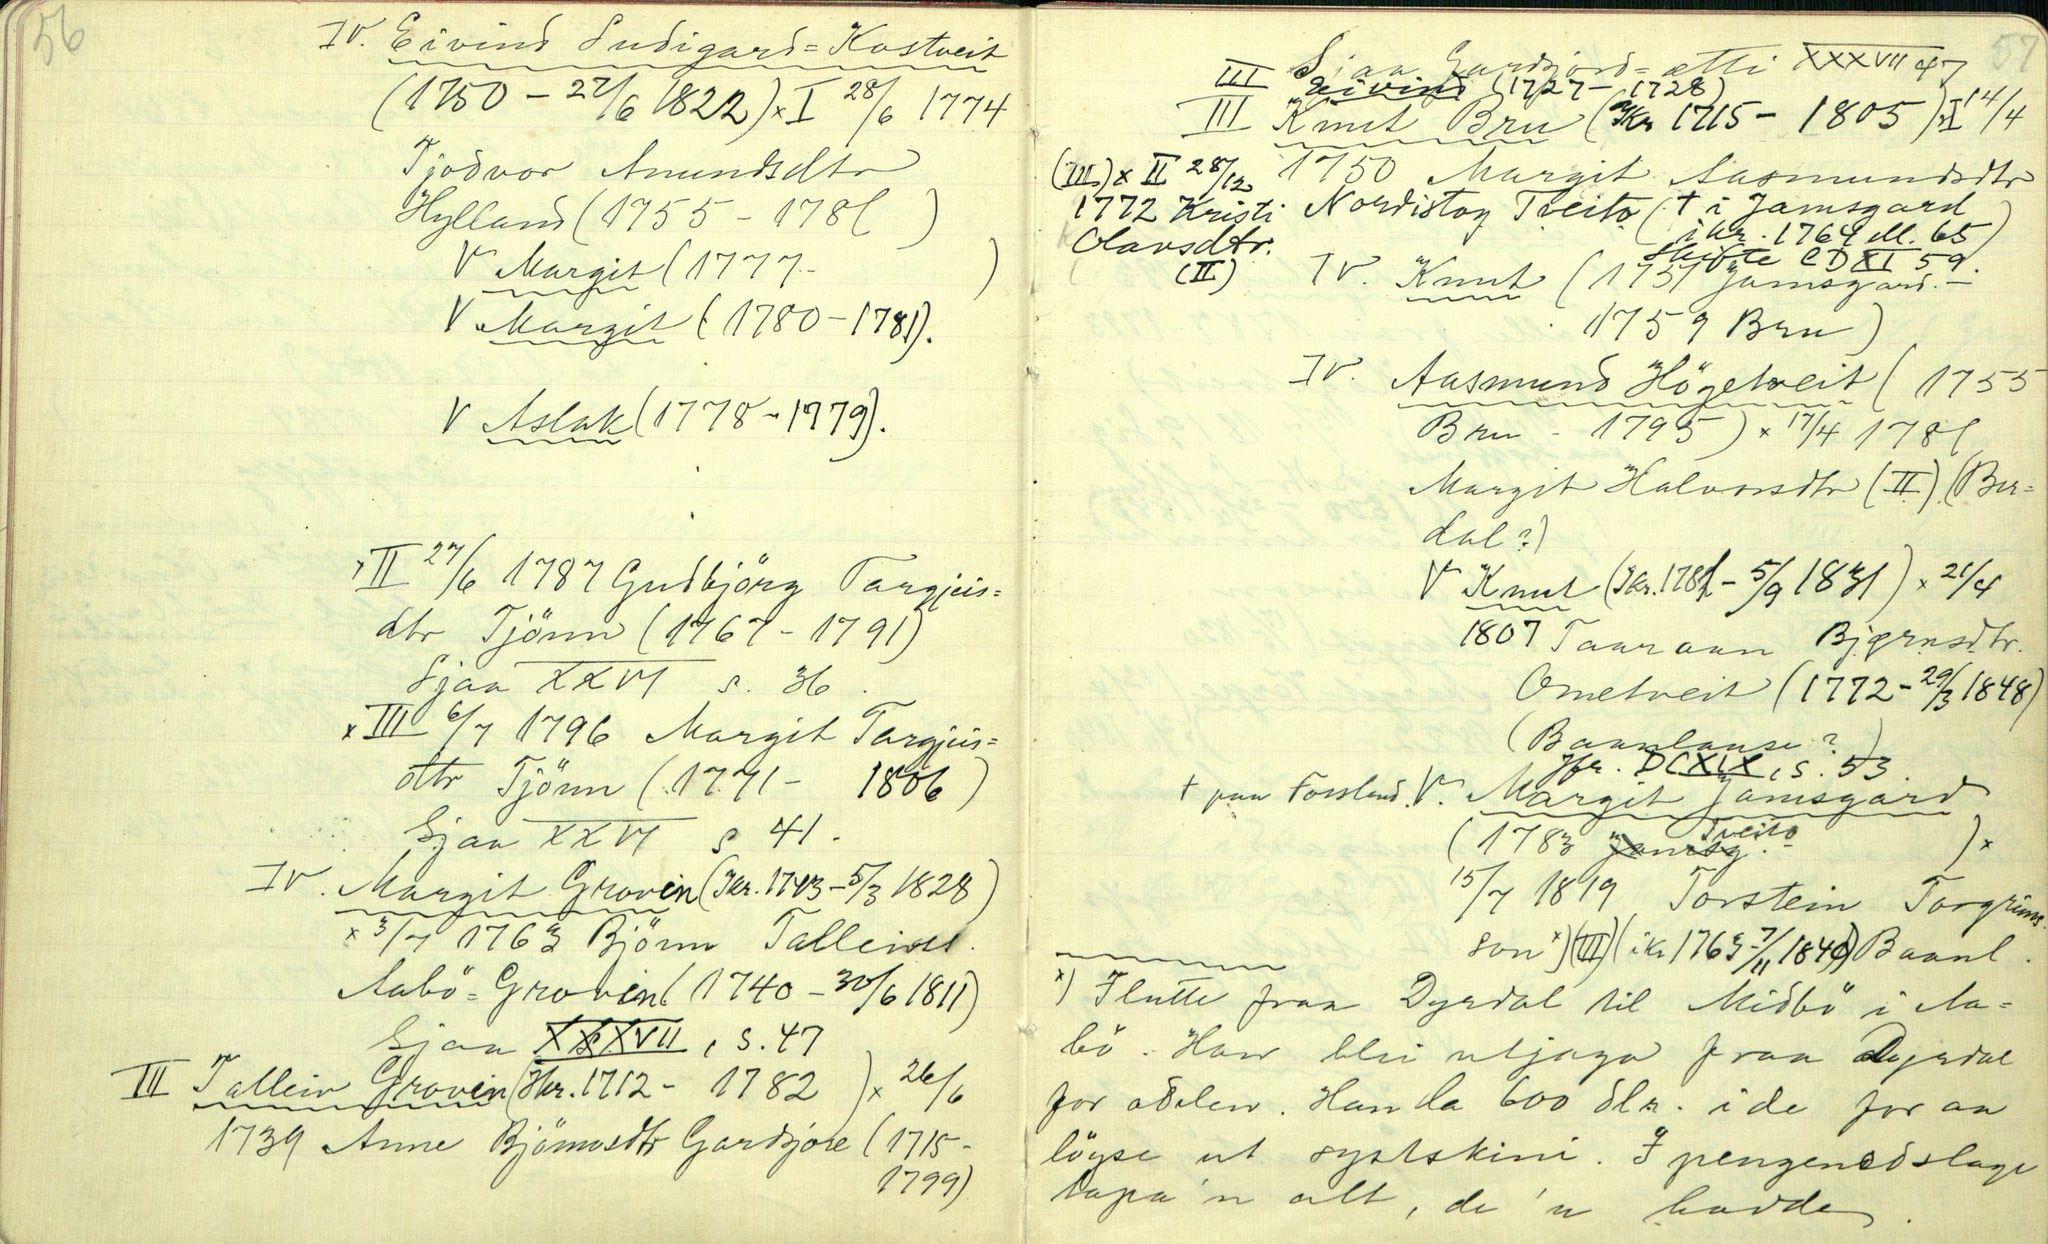 56
IV. Eivind Sudigard=Kostveit
(1750 – 27/6 1822) × I 28/6 1774
Tjodvor Amundsdtr
Hylland (1755 – 1781 )
V Margit (1777– )
V Margit (1780 – 1781).
V Aslak (1778 – 1779).
× II 27/6 1787 Gudbjörg Targjeis=
dtr Tjönn (1767 – 1791)
Sjaa XXVI s. 36.
× III 6/7 1796 Margit Targjeis=
dtr Tjönn (1771 – 1806)
Sjaa XXVI s 41.
IV. Margit Groven (Ikr. 1743 – 5/3 1828)
× 3/7 1763 Björn Talleivs.
Aabö=Groven (1740 – 30/6 1811)
Sjaa XXXVII, s. 47
III Talleiv Groven (Ikr. 1712 – 1782 ) × 26/6
1739 Anne Björnsdtr Gardsjore (1715 –
1799)
57
Sjaa Gardsjord=ætti XXXVII 47
III Eivind (1727 – 1728)
III Knut Bru (Ikr 1715 – 1805) × I 14/4
1750 Margit Aasmundsdtr
Nordistog Tveito († i Jamsgard
ikr. 1764 ell. 65)
Skifte CDXI 59.
(III) × II 28/12
1772 Kristi
Olavsdtr.
(II)
IV. Knut (1751 Jamsgard. –
1759 Bru)
IV. Aasmund Högetveit (1755
Bru – 1795) × 17/4 1781
Margit Halvorsdtr (II) (Ber=
dal?)
V Knut (Ikr. 1781 – 5/9 1831) × 21/4
1807 Taaraan Bjørnsdtr.
Ometveit (1772 – 29/3 1848)
(Baanlause?)
Jfr. DCXIX, s. 53.
† paa Forsland. V. Margit Jamsgard
(1783 Jamsg. Tveito – ) ×
15/7 1819 Torstein Torgrims.
son ×) (III) (ikr 1763 – 7/11 1840) Baanl.
×) Flutte fraa Dyrdal til Midbö i Aa=
bö. Han blei utjaga fraa Dyrdal
for odelen. Han la 600 dlr. i de for aa
löyse ut systskini. I pengenedslage
tapa 'n alt, de 'n hadde.